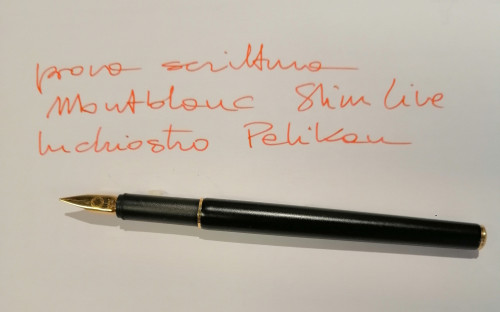 prova scrittura
Montblanc Slim Live
Inchiostro Pelikan